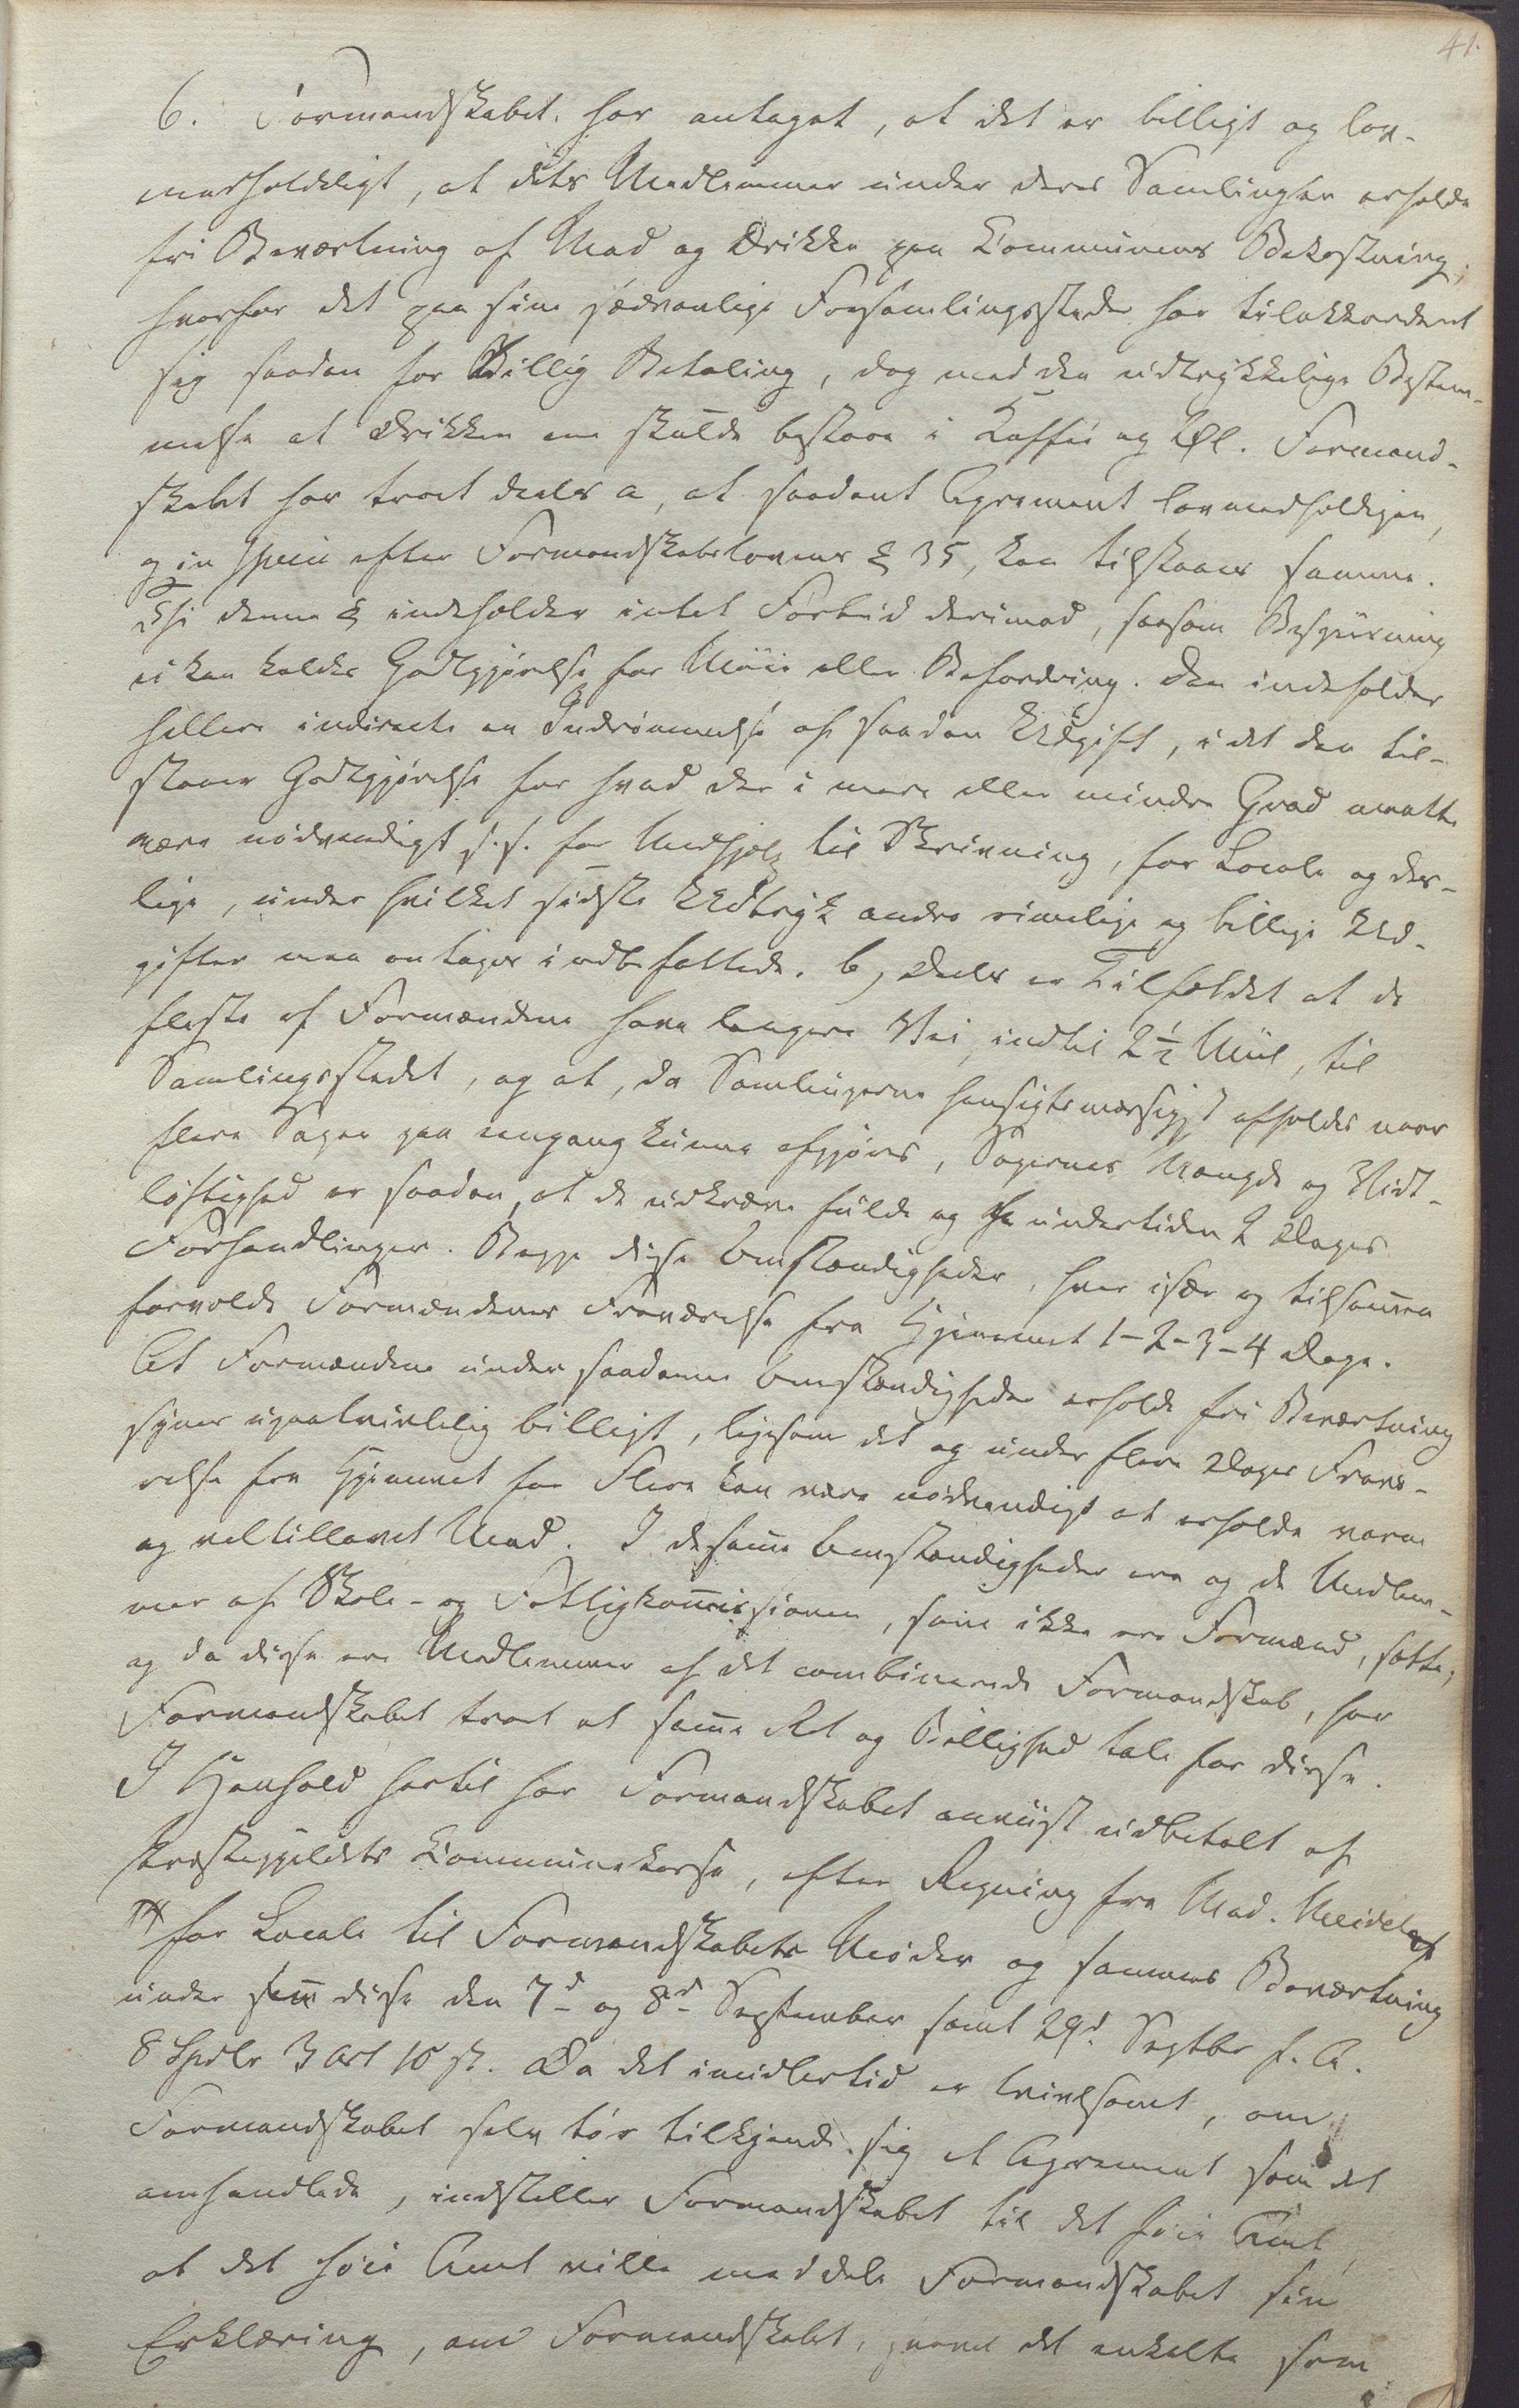 41.
6. Formandskabet har antaget, at det er billigt og lov-
medholdeligt, at dets Medlemmer under deres Samlinger erholde
fri Beværtning af Mad og Drikke paa Communens Bekostning;
hvorfor det paa sine sædvanlige Forsamlingsstæder har tilakkorderet
sig saadan for Billig Betaling, dog med den udtrykkelige Bestem-
melse at Drikken kun skulde bestaae i Kaffe og Øl. Formand-
skabet har troet deels a, at saadant Agrement lovmedholdigen,
og in specie efter Formandskabslovens § 35, kan tilstaaes samme.
Thi denne § indeholder intet Forbud derimod, saasom Bespiisning
ei kan kaldes Godtgjørelse for Møie eller Befordring. Den indeholder
hellere indirecte en Indrømmelse af saadan Udgift, i det den til-
staaer Godtgjørelse for hvad der i mere eller mindre Grad maatte
være nødvendigt f. s. for Medhjelp til Skrivning, for Locale og des-
lige, under hvilket sidste Udtryk andre rimelige og billige Ud-
gifter maa antages indbefattede. b, Deels er Tilfældet at de
fleste af Formændene have længere Vei, indtil 2½ Miil, til
Samlingsstedet, og at, da Samlingerne hensigtsmæssigst afholdes naar
flere Sager paa eengang kunne afgjøres, Sagernes Mængde og Vidt-
løftighed er saadan, at de udkræve fulde og undertiden 2 Dages
Forhandlinger. Begge disse Omstændigheder, hver især og tilsammen
forvolde Formændenes Fraværelse fra Hjemmet 1-2-3-4 Dage.
At Formændene under saadanne Omstændigheder erholde fri Beværtning
synes upaatvivlelig billigt, ligesom det og under flere Dages Fravæ-
relse fra Hjemmet for Flere kan være nødvendigt at erholde varm
og veltillavet Mad. I de samme Omstændigheder ere og de Medlem-
mer af Skole- og Fattigkommissionen, som ikke ere Formænd, satte,
og da disse ere Medlemmer af det combinerede Formandskab, har
Formandskabet troet at samme Ret og Billighed tale for disse.
I Henhold hertil har Formandskabet anviist udbetalt af
Præstegjeldets Communekasse, efter Regning fra Mad. Meidel
for Locale til Formandskabets Møder og sammes Beværtning
under disse den 7d og 8d September samt 29d Septbr f. A.
8 Spdlr 3 ort 10 ß. Da det imidlertid er tvivlsomt, om
Formandskabet selv tør tilkjende sig et Agrement som det
omhandlede, indstiller Formandskabet til det høie Amt,
at det høie Amt ville meddele Formandskabet sin
Erklæring, om Formandskabet, saavel det enkelte som